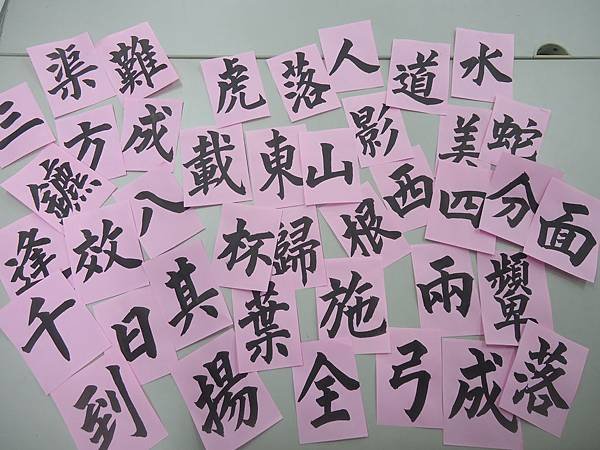 渠 難 虎 落 人 道 水
三 方 成 載 東 山 影 美 蛇
鑣 八 杯 歸 根 西 四 分 面
逢 效 其 葉 施 兩 顰
千 日
到 揚 全 弓 成 落